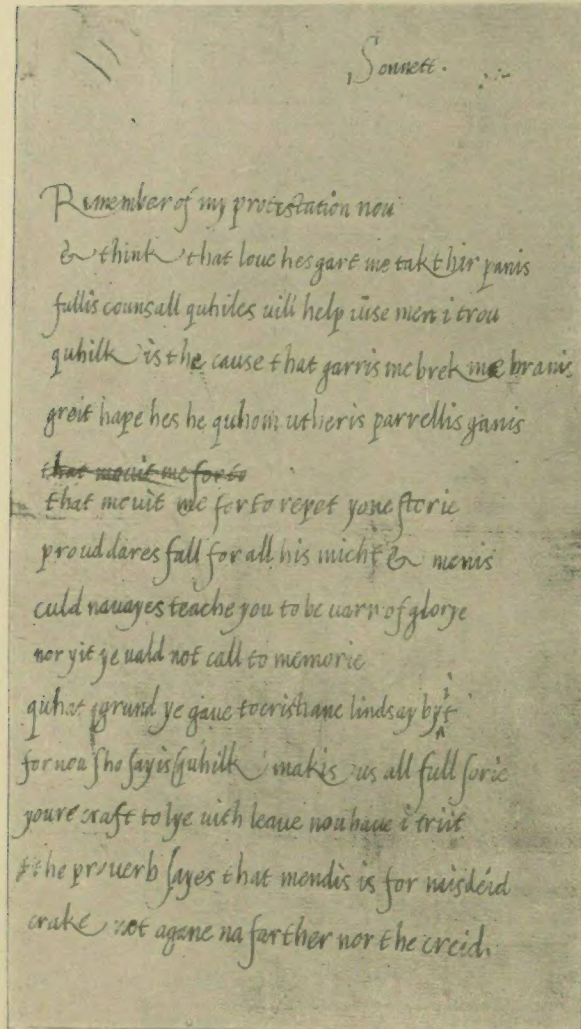 Sonnett.
Remember of my protestation nou
& think that loue hes gart me tak thir panis
fullis counsall quhiles uill help uise men i trou
quhilk is the cause that garris me brek my branis
greit hape hes he quhom utheris parrellis ganis
that mouit me for to
that mouit me for to repet yone storie
proud dares fall for all his micht & menis
culd nauayes teache you to be uarr of glorye
nor yit ye uald not call to memorie
quhat grund ye gaue to cristiane lindsay by it
for nou sho sayis quhilk makis us all full sorie
youre craft to lye uith leaue nou haue i triit
the prouerb sayes that mendis is for misdeid
crake not agane na farther nor the creid.